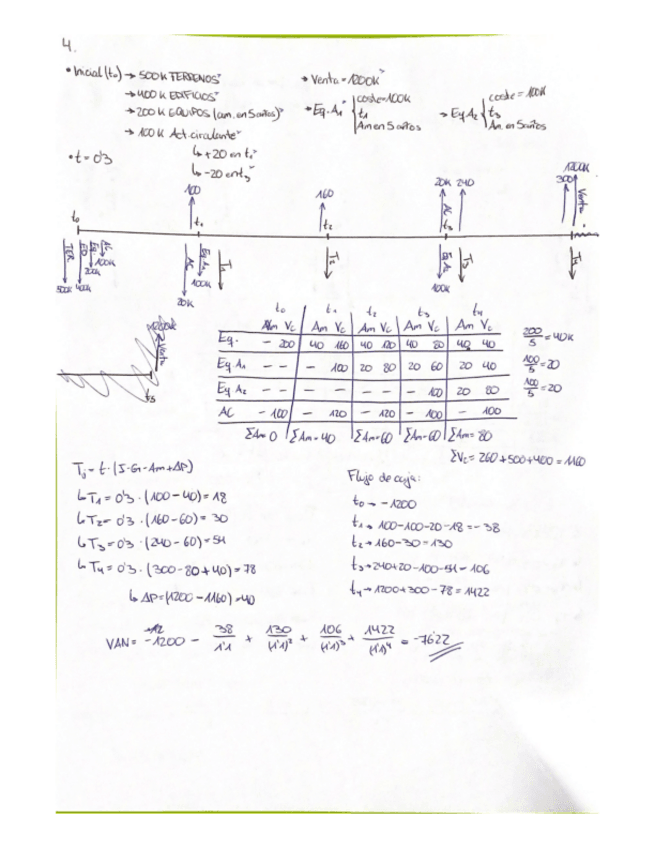 4.
• Inicial (t₀) → 500K TERRENOS
→ 400K EDIFICIOS
→ 200K EQUIPOS (am. en 5 años)
→ 100K Act. circulante
↳ +20 en t₁
↳ -20 en t₃
→ Venta = 1200K
→ Eq. A₁ { coste = 100K
t₁
Am en 5 años
→ Eq A₂ { coste = 100K
t₃
Am. en 5 años
• t = 0'3
100 160 20K 240 300 1200K
AC Venta
t₀ t₁ t₂ t₃ t₄
TER ED Eq AC
500K 400K 200K 100K
AC Eq A₁ T₁
20K 100K
T₂
Eq A₂ T₃
100K
T₄
Venta
t₅
t₀ t₁ t₂ t₃ t₄
Am Vc Am Vc Am Vc Am Vc Am Vc
Eq. - 200 40 160 40 120 40 80 40 40
Eq A₁ - - - 100 20 80 20 60 20 40
Eq A₂ - - - - - - - 100 20 80
AC - 100 - 120 - 120 - 100 - 100
ΣAm 0 ΣAm = 40 ΣAm = 60 ΣAm = 60 ΣAm = 80
200/5 = 40K
100/5 = 20
100/5 = 20
ΣVc = 260 + 500 + 400 = 1160
Tj = t · (I - G - Am + ΔP)
↳ T₁ = 0'3 · (100 - 40) = 18
↳ T₂ = 0'3 · (160 - 60) = 30
↳ T₃ = 0'3 · (240 - 60) = 54
↳ T₄ = 0'3 · (300 - 80 + 40) = 78
↳ ΔP = (1200 - 1160) = 40
Flujo de caja:
t₀ → -1200
t₁ → 100 - 100 - 20 - 18 = -38
t₂ → 160 - 30 = 130
t₃ → 240 + 20 - 100 - 54 = 106
t₄ → 1200 + 300 - 78 = 1422
VAN = -1200 - 38/1'1 + 130/(1'1)² + 106/(1'1)³ + 1422/(1'1)⁴ = -76'22